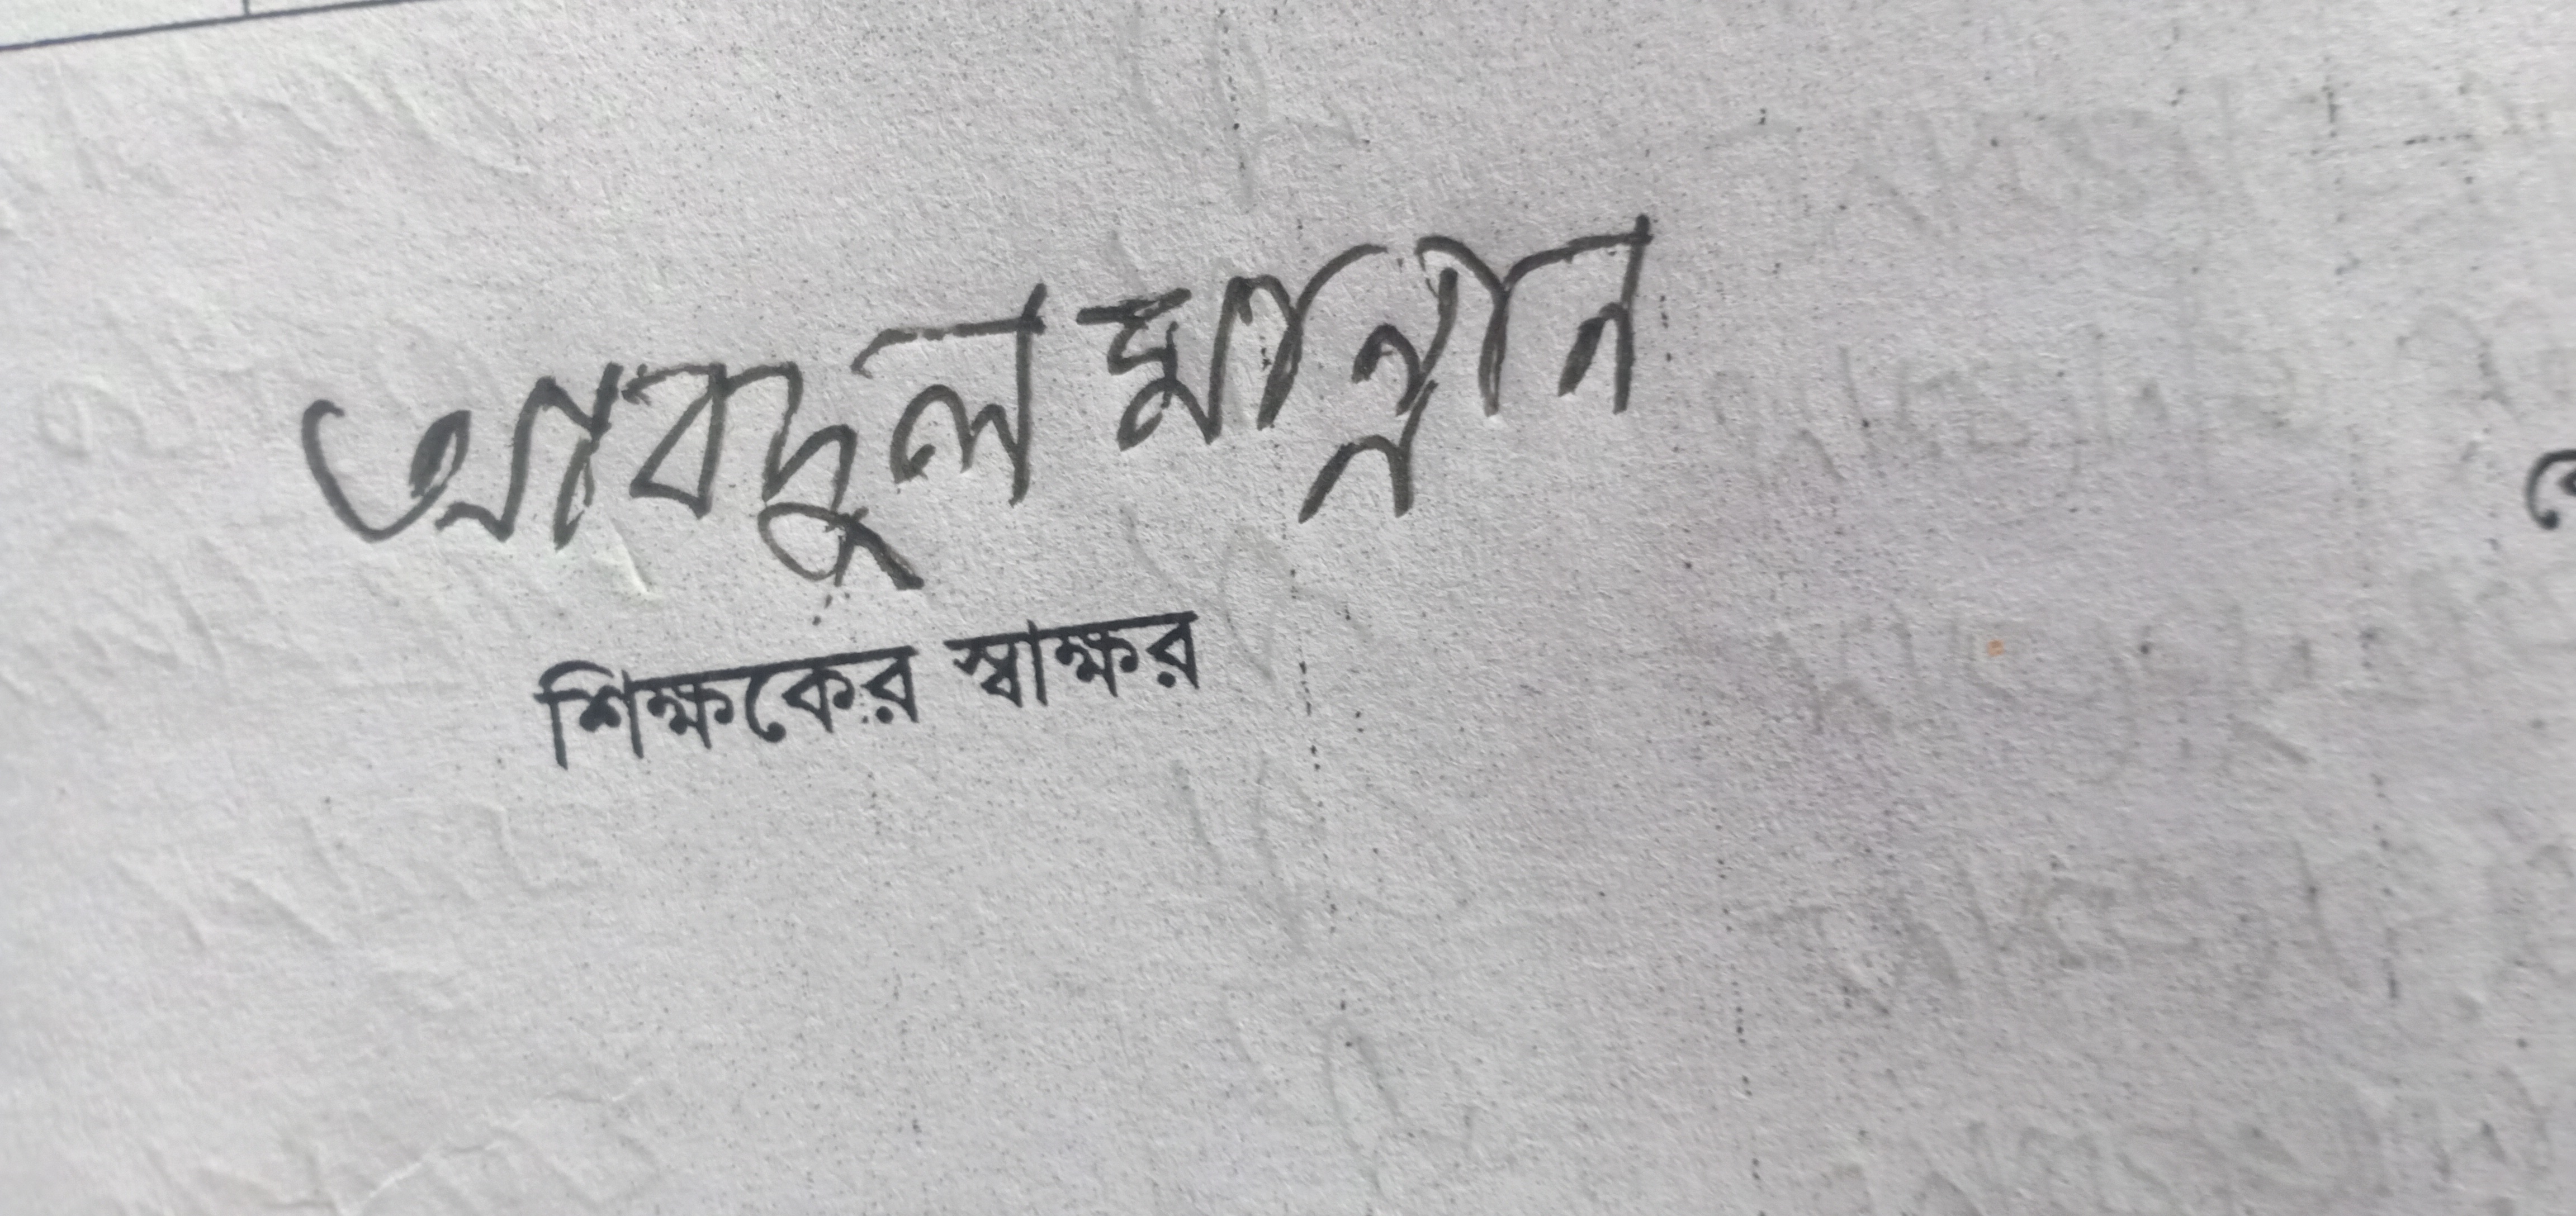 আবদুল মান্নান
শিক্ষকের স্বাক্ষর